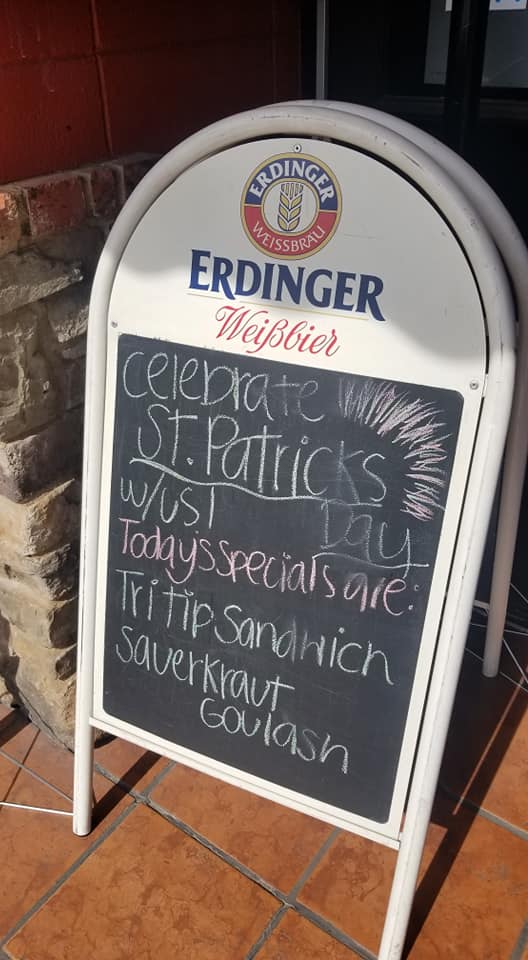 ERDINGER
WEISSBRÄU
ERDINGER
Weißbier
celebrate
St. Patricks
w/us! Day
Today's specials are:
Tri tip Sandwich
sauerkraut
Goulash